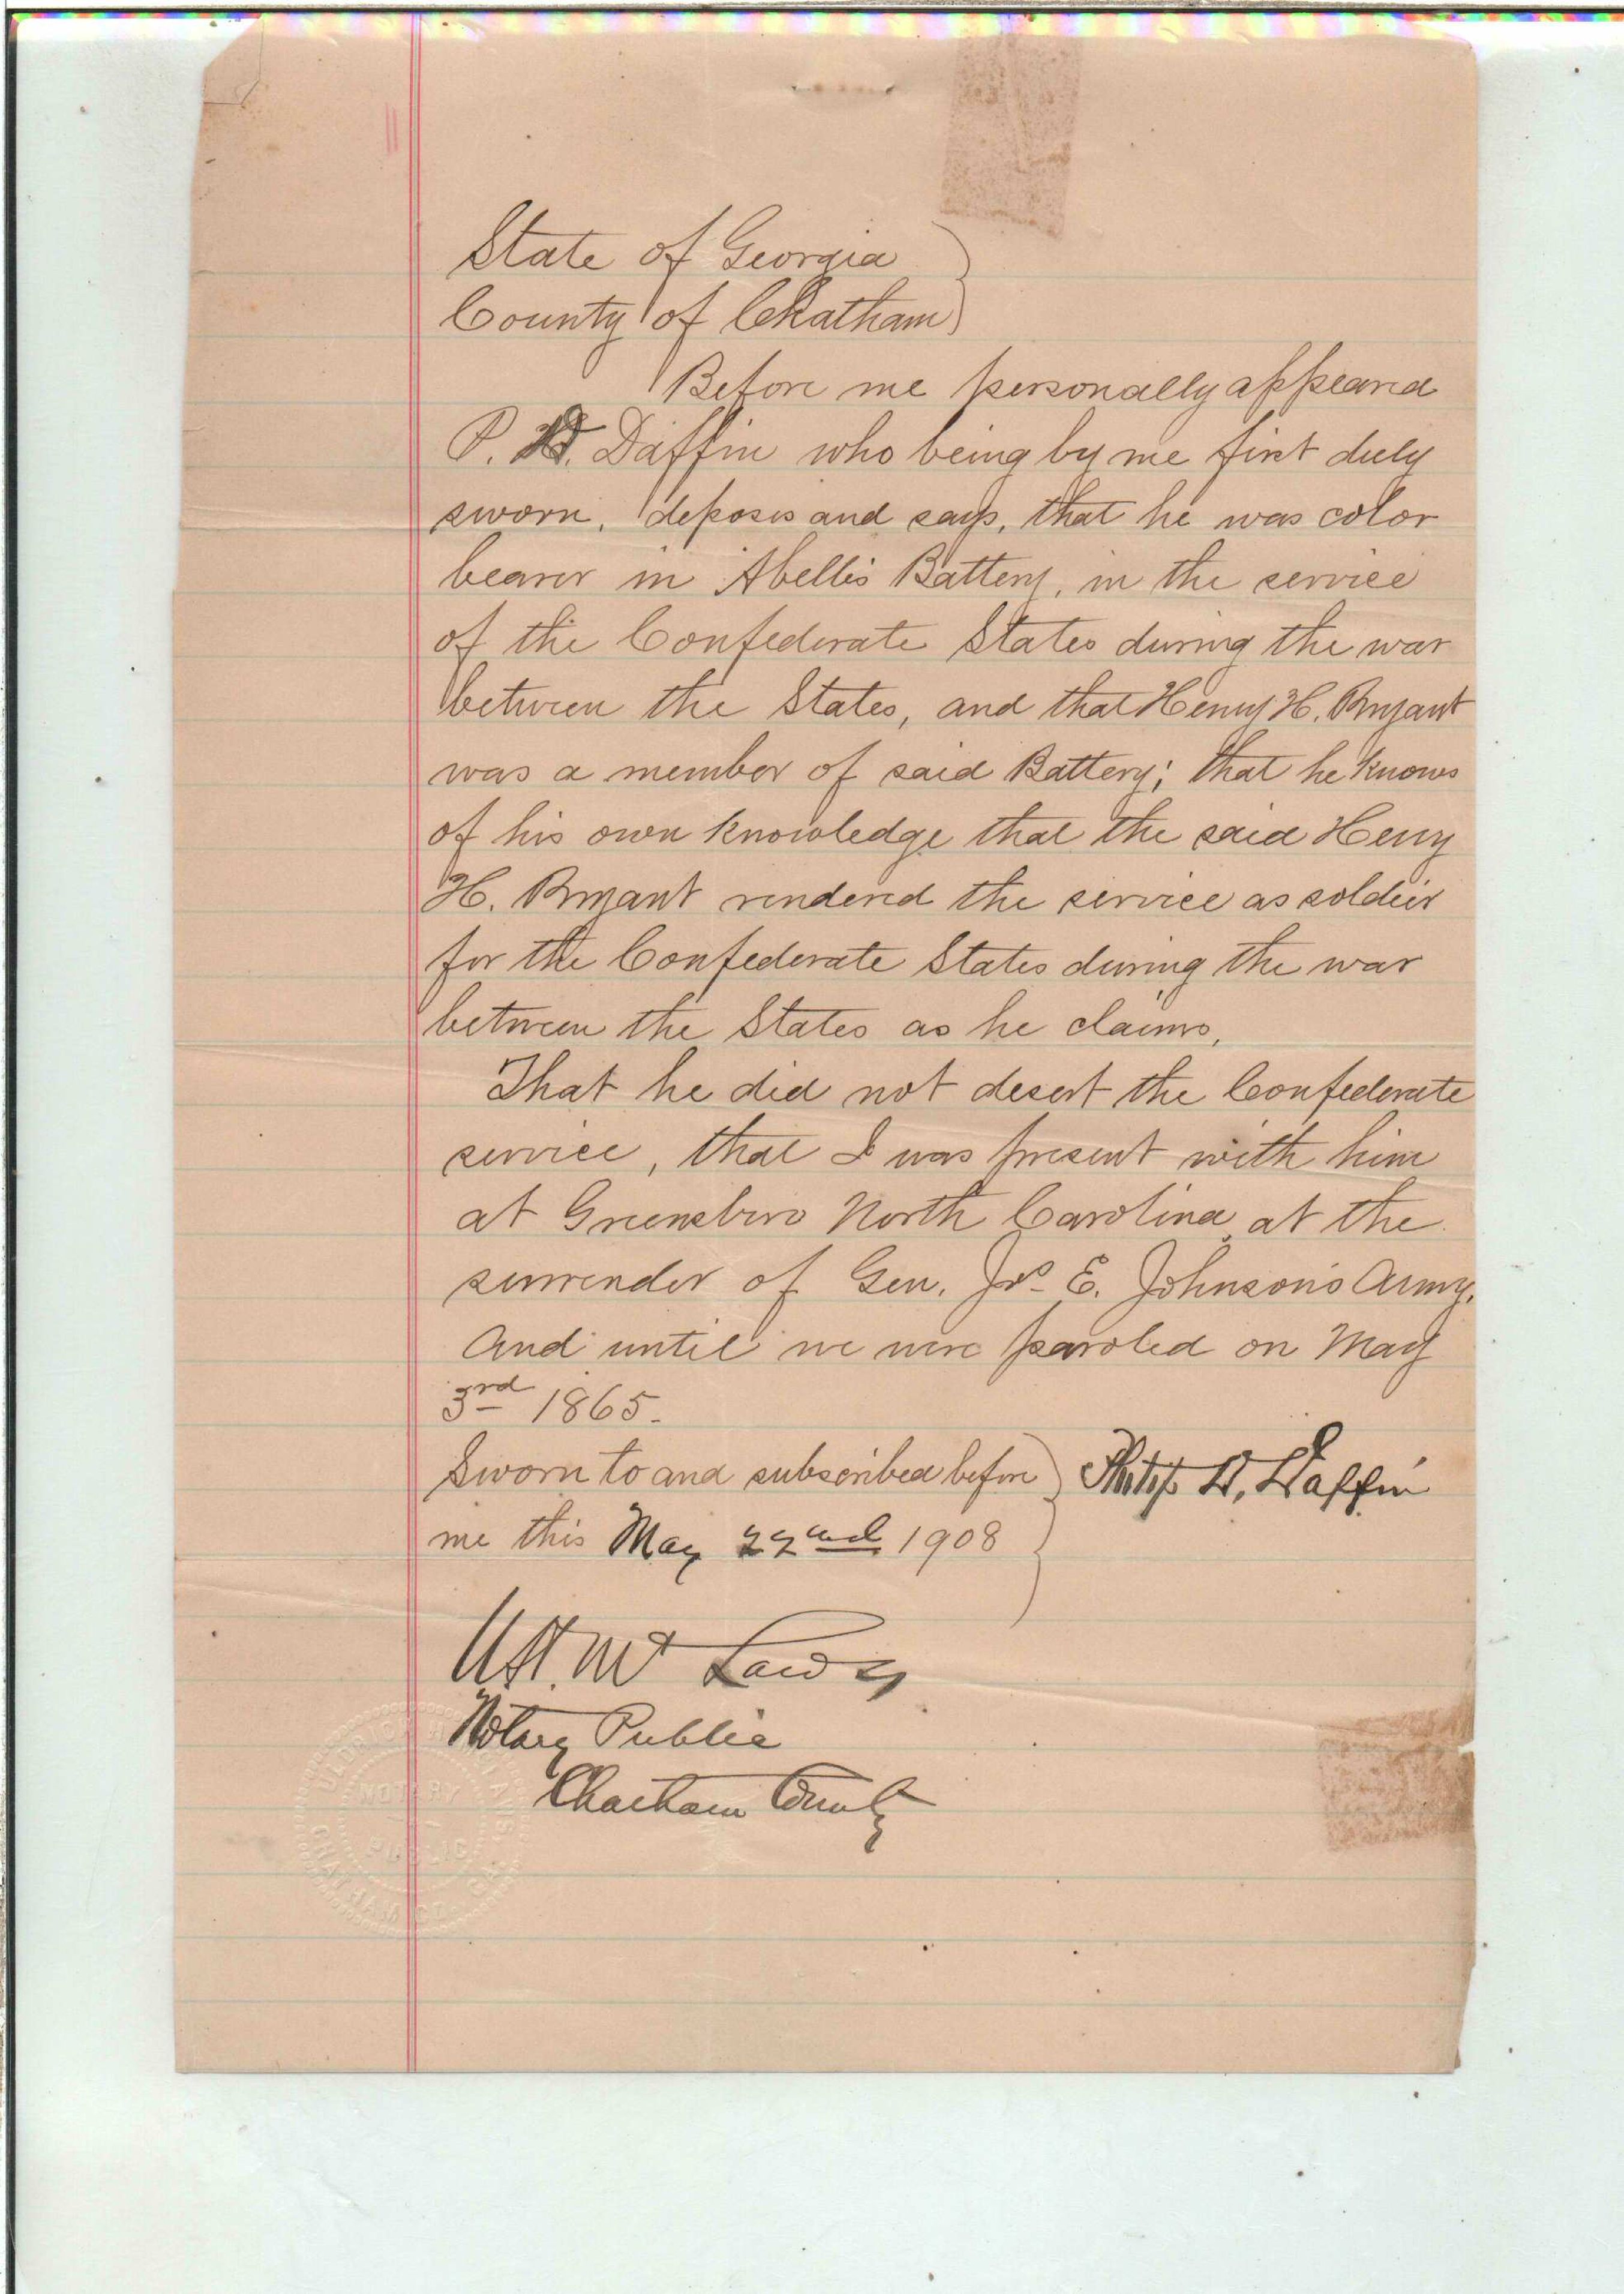 State of Georgia
County of Chatham
Before me personally appeared
P. D. Daffin who being by me first duly
sworn, deposes and says, that he was color
bearer in Abell's Battery, in the service
of the Confederate States during the war
between the States, and that Henry H. Bryant
was a member of said Battery; that he knows
of his own knowledge that the said Henry
H. Bryant rendered the service as soldier
for the Confederate States during the war
between the States as he claims,
That he did not desert the Confederate
service, that I was present with him
at Greensboro North Carolina at the
surrender of Gen. Jos E. Johnson's Army,
And until we were paroled on May
3rd 1865.
Sworn to and subscribed before
me this May 22nd 1908
Philip D. Daffin
U.H. Mc Laws
Notary Public
Chatham County
NOTARY
PUBLIC